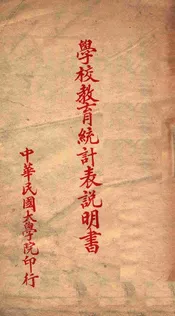 學校教育統計表說明書
中華民國大學院印行